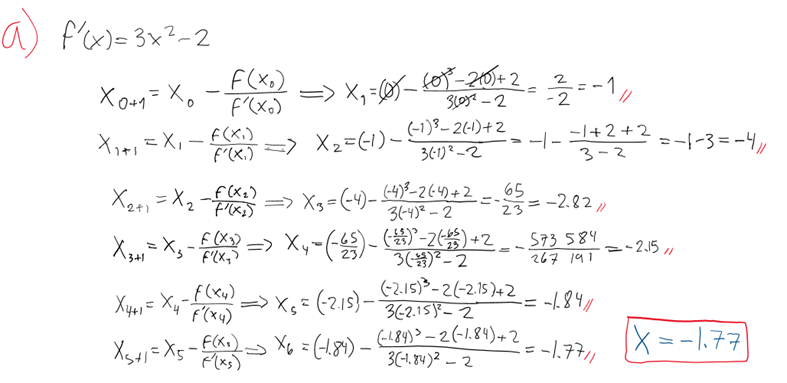 a) f'(x)=3x²-2
X₀₊₁ = X₀ - f(X₀)/f'(X₀) ⟹ X₁ = (0) - ((0)³-2(0)+2)/(3(0)²-2) = 2/-2 = -1 //
X₁₊₁ = X₁ - f(X₁)/f'(X₁) ⟹ X₂ = (-1) - ((-1)³-2(-1)+2)/(3(-1)²-2) = -1 - (-1+2+2)/(3-2) = -1-3 = -4 //
X₂₊₁ = X₂ - f(X₂)/f'(X₂) ⟹ X₃ = (-4) - ((-4)³-2(-4)+2)/(3(-4)²-2) = -65/23 = -2.82 //
X₃₊₁ = X₃ - f(X₃)/f'(X₃) ⟹ X₄ = (-65/23) - ((-65/23)³-2(-65/23)+2)/(3(-65/23)²-2) = -573 584/267 191 = -2.15 //
X₄₊₁ = X₄ - f(X₄)/f'(X₄) ⟹ X₅ = (-2.15) - ((-2.15)³-2(-2.15)+2)/(3(-2.15)²-2) = -1.84 //
X₅₊₁ = X₅ - f(X₅)/f'(X₅) ⟹ X₆ = (-1.84) - ((-1.84)³-2(-1.84)+2)/(3(-1.84)²-2) = -1.77 //
X = -1.77